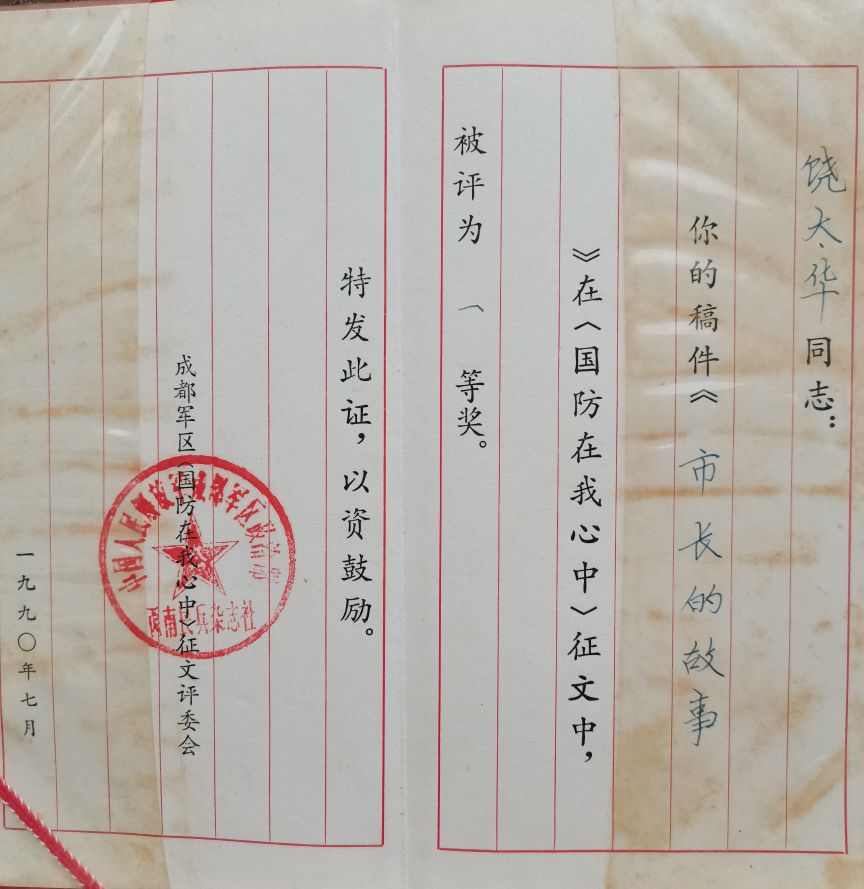 饶太华同志：
你的稿件《市长的故事
》在〈国防在我心中〉征文中，
被评为一等奖。
特发此证，以资鼓励。
成都军区〈国防在我心中〉征文评委会
一九九〇年七月
中国人民解放军成都军区政治部
西南民兵杂志社